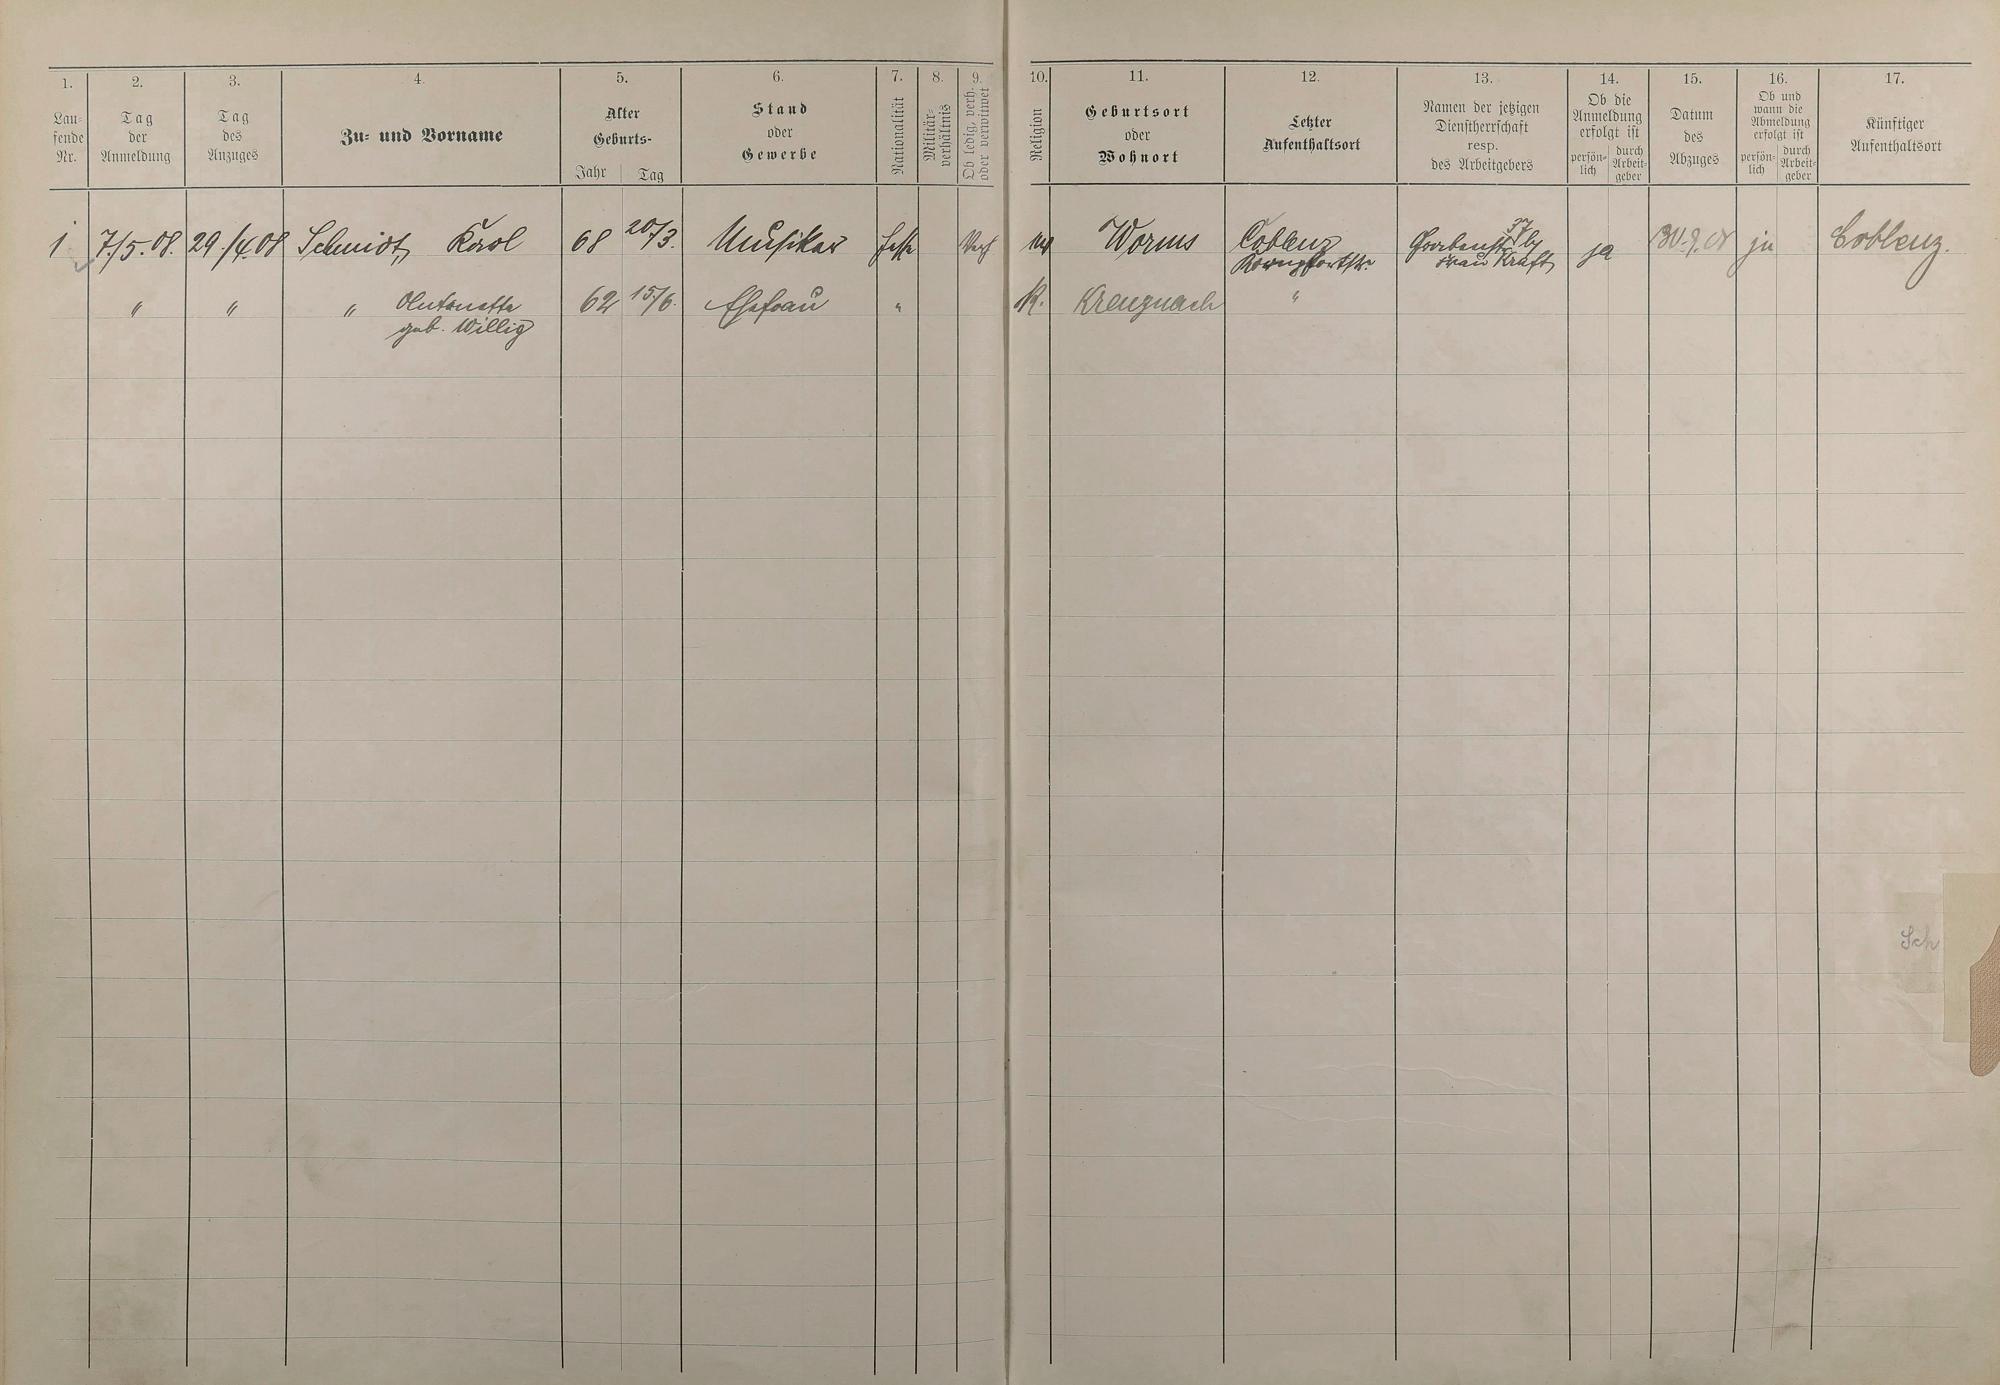 1. 2. 3. 4. 5. 6. 7. 8. 9. 10. 11. 12. 13. 14. 15. 16. 17.
Lau-
fende
Nr.
Tag
der
Anmeldung
Tag
des
Anzuges
Zu- und Vorname
Alter
Geburts-
Jahr Tag
Stand
oder
Gewerbe
Nationalität
Militär-
verhältnis
Ob ledig, verh.
oder verwitwet
Religion
Geburtsort
oder
Wohnort
Letzter
Aufenthaltsort
Namen der jetzigen
Dienstherrschaft
resp.
des Arbeitgebers
Ob die
Anmeldung
erfolgt ist
persön-
lich
durch
Arbeit-
geber
Datum
des
Abzuges
Ob und
wann die
Abmeldung
erfolgt ist
persön-
lich
durch
Arbeit-
geber
Künftiger
Aufenthaltsort
1 7./5.08. 29./4.08 Schmidt, Karl 68 20/3. Musiker Hesse Verh Worms Coblenz ja 30.9.08 ja Coblenz.
Kornpfortstr. Frau Kraft
" " " Antonette 62 15/6. Ehefrau " K. Kreuznach "
geb. Willig
Sch